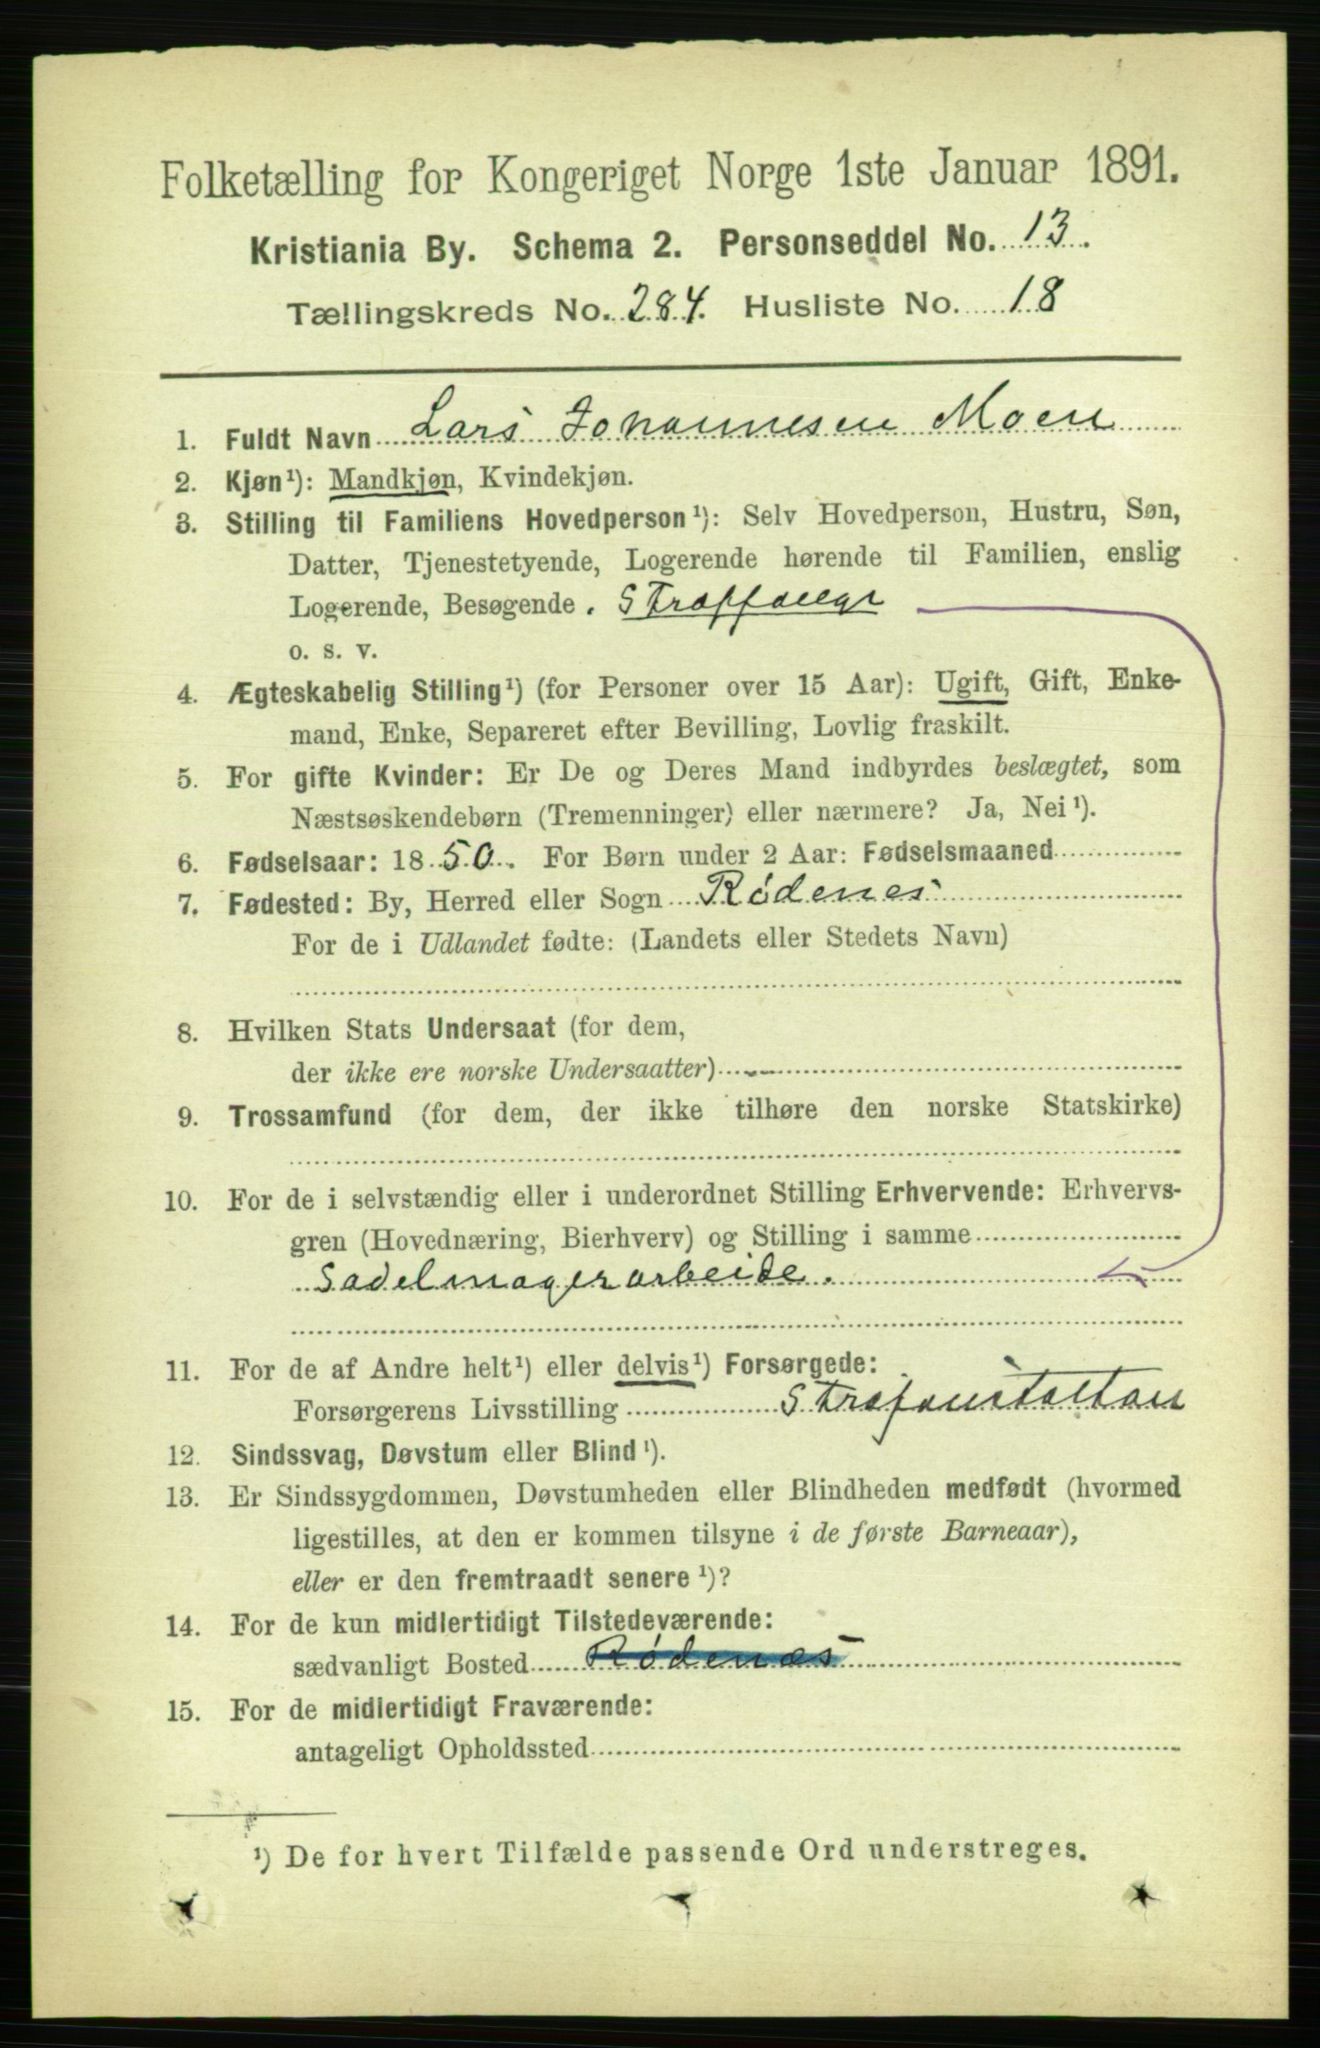 Folketælling for Kongeriget Norge 1ste Januar 1891.
Kristiania By. Schema 2. Personseddel No. 13.
Tællingskreds No. 284. Husliste No. 18
1. Fuldt Navn Lars Johannesen Moen
2. Kjøn¹): Mandkjøn, Kvindekjøn.
3. Stilling til Familiens Hovedperson¹): Selv Hovedperson, Hustru, Søn,
Datter, Tjenestetyende, Logerende hørende til Familien, enslig
Logerende, Besøgende. Straffange
o. s. v.
4. Ægteskabelig Stilling¹) (for Personer over 15 Aar): Ugift, Gift, Enke-
mand, Enke, Separeret efter Bevilling, Lovlig fraskilt.
5. For gifte Kvinder: Er De og Deres Mand indbyrdes beslægtet, som
Næstsøskendebørn (Tremenninger) eller nærmere? Ja, Nei¹).
6. Fødselsaar: 1850. For Børn under 2 Aar: Fødselsmaaned
7. Fødested: By, Herred eller Sogn Rødenes
For de i Udlandet fødte: (Landets eller Stedets Navn)
8. Hvilken Stats Undersaat (for dem,
der ikke ere norske Undersaatter)
9. Trossamfund (for dem, der ikke tilhøre den norske Statskirke)
10. For de i selvstændig eller i underordnet Stilling Erhvervende: Erhvervs-
gren (Hovednæring, Bierhverv) og Stilling i samme
Sadelmagerarbeide.
11. For de af Andre helt¹) eller delvis¹) Forsørgede:
Forsørgerens Livsstilling Strafanstalten
12. Sindssvag, Døvstum eller Blind¹).
13. Er Sindssygdommen, Døvstumheden eller Blindheden medfødt (hvormed
ligestilles, at den er kommen tilsyne i de første Barneaar),
eller er den fremtraadt senere¹)?
14. For de kun midlertidigt Tilstedeværende:
sædvanligt Bosted Rødenæs
15. For de midlertidigt Fraværende:
antageligt Opholdssted
¹) De for hvert Tilfælde passende Ord understreges.